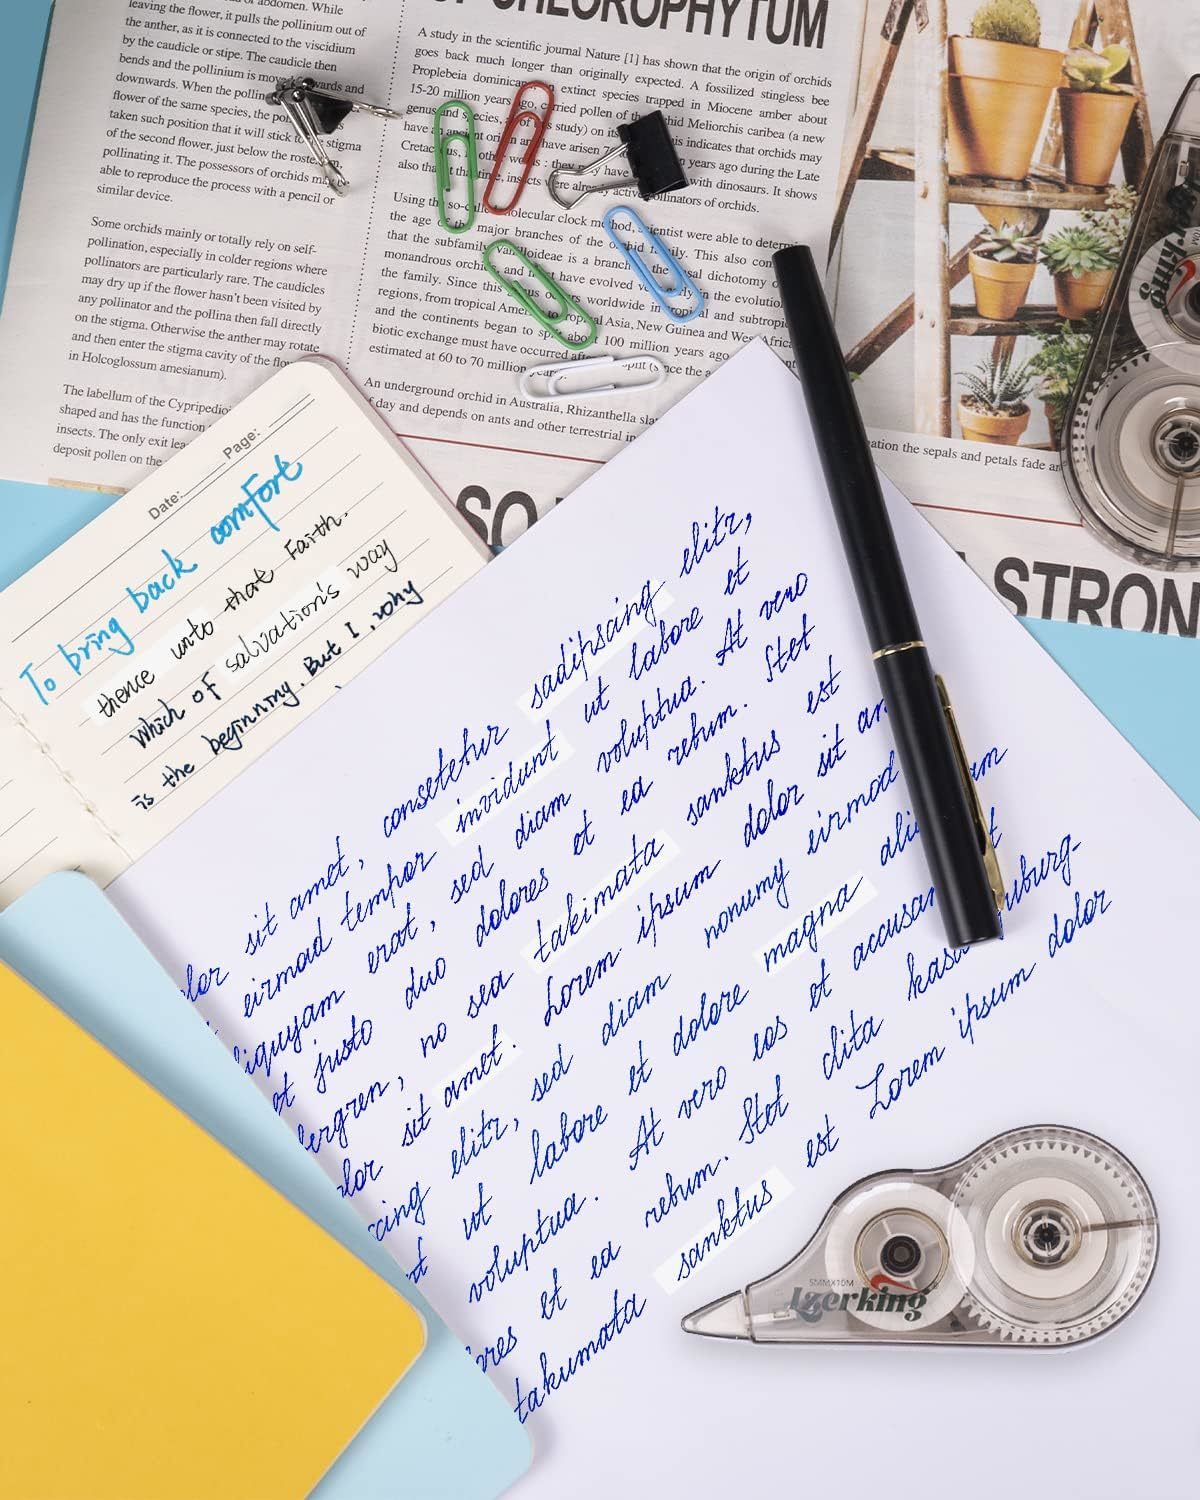 CHLOROPHYTUM
of abdomen. While
leaving the flower, it pulls the pollinium out of
the anther, as it is connected to the viscidium
by the caudicle or stipe. The caudicle then
bends and the pollinium is moved forwards and
downwards. When the pollinator
flower of the same species, the
taken such position that it will stick to the stigma
of the second flower, just below the rostellum,
pollinating it. The possessors of orchids may be
able to reproduce the process with a pencil or
similar device.
Some orchids mainly or totally rely on self-
pollination, especially in colder regions where
pollinators are particularly rare. The caudicles
may dry up if the flower hasn't been visited by
any pollinator and the pollina then fall directly
on the stigma. Otherwise the anther may rotate
and then enter the stigma cavity of the
in Holcoglossum amesianum).
The labellum of the Cypripedio
shaped and has the function
insects. The only exit lea
deposit pollen on the
A study in the scientific journal Nature [1] has shown that the origin of orchids
goes back much longer than originally expected. A fossilized stingless bee
Proplebeia dominicana, extinct species trapped in Miocene amber about
15-20 million years ago, carried pollen of the orchid Meliorchis caribea (a new
genus and species, as of this study) on its this indicates that orchids may
have an ancient origin and have arisen years ago during the Late
Cretaceous, in other words: they may have with dinosaurs. It shows
also that at that time, insects were already active pollinators of orchids.
Using the so-called molecular clock method, scientist were able to determi
the age of the major branches of the orchid family. This also con
that the subfamily Vanilloideae is a branch the basal dichotomy o
monandrous orchids, and must have evolved very early in the evolution
the family. Since this genus occurs worldwide in tropical and subtropic
regions, from tropical America to tropical Asia, New Guinea and West Africa
and the continents began to split about 100 million years ago
biotic exchange must have occurred after split (since the a
estimated at 60 to 70 million years).
An underground orchid in Australia, Rhizanthella slat
of day and depends on ants and other terrestrial in
ation the sepals and petals fade an
SO
STRON
Date: Page:
To bring back comfort
thence unto that Faith.
Which of salvation's way
is the beginning. But I, why
sit amet, consetetur sadipscing elitr,
eirmod tempor invidunt ut labore et
liquyam erat, sed diam voluptua. At vero
et justo duo dolores et ea rebum. Stet
bergren, no sea takimata sanktus est
lor sit amet. Lorem ipsum dolor sit am
scing elitr, sed diam nonumy eirmod
ut labore et dolore magna ali
voluptua. At vero eos et accusam
ores et ea rebum. Stet clita kasd guburg-
takumata sanktus est Lorem ipsum dolor
5MMX10M
Izerking